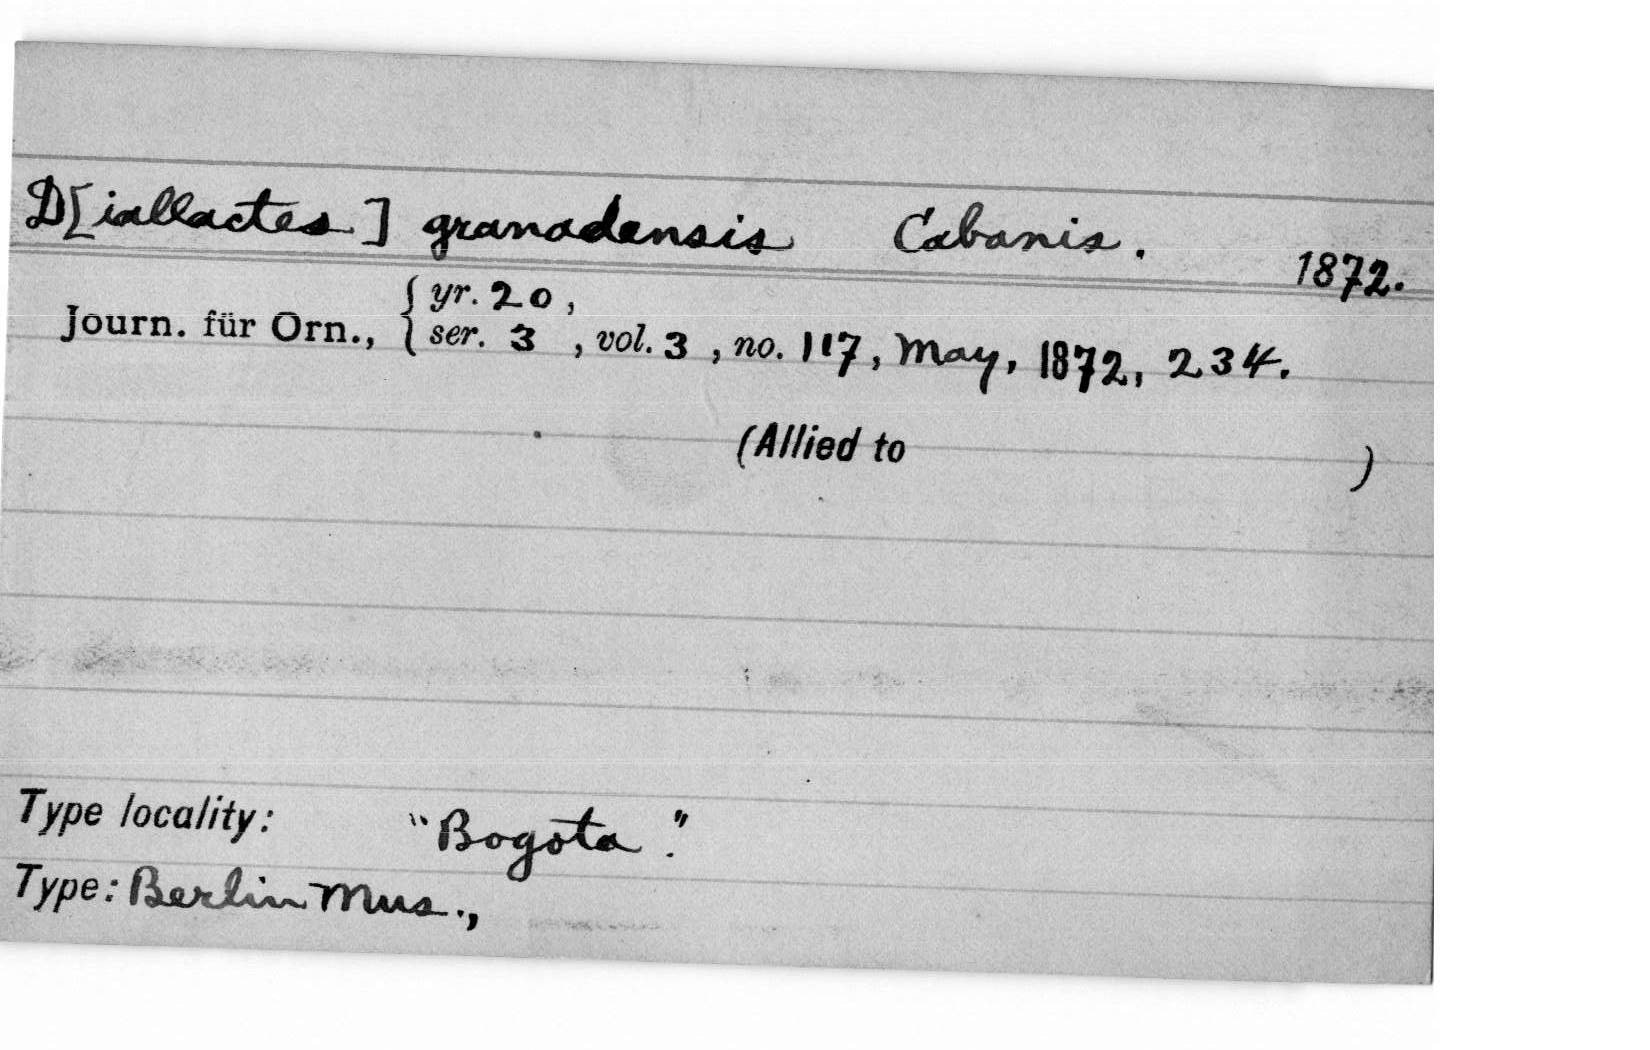 D[iallactes] granadensis Cabanis.
1872.
Journ. für Orn., { yr. 20,
ser. 3, vol. 3, no. 117, May, 1872, 234.
(Allied to )
Type locality: "Bogota."
Type: Berlin Mus.,